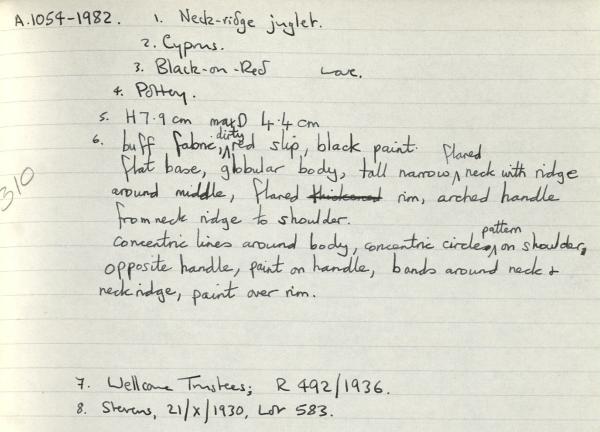 A.1054-1982. 1. Neck-ridge juglet.
2. Cyprus.
3. Black-on-Red Ware.
4. Pottery.
5. H 7.9 cm max D 4.4 cm
6. buff fabric, dirty red slip, black paint.
flat base, globular body, tall narrow flared neck with ridge
around middle, flared thickened rim, arched handle
from neck ridge to shoulder.
concentric lines around body, concentric circle pattern on shoulder,
opposite handle, paint on handle, bands around neck &
neck ridge, paint over rim.
310
7. Wellcome Trustees; R 492/1936.
8. Stevens, 21/X/1930, Lot 583.